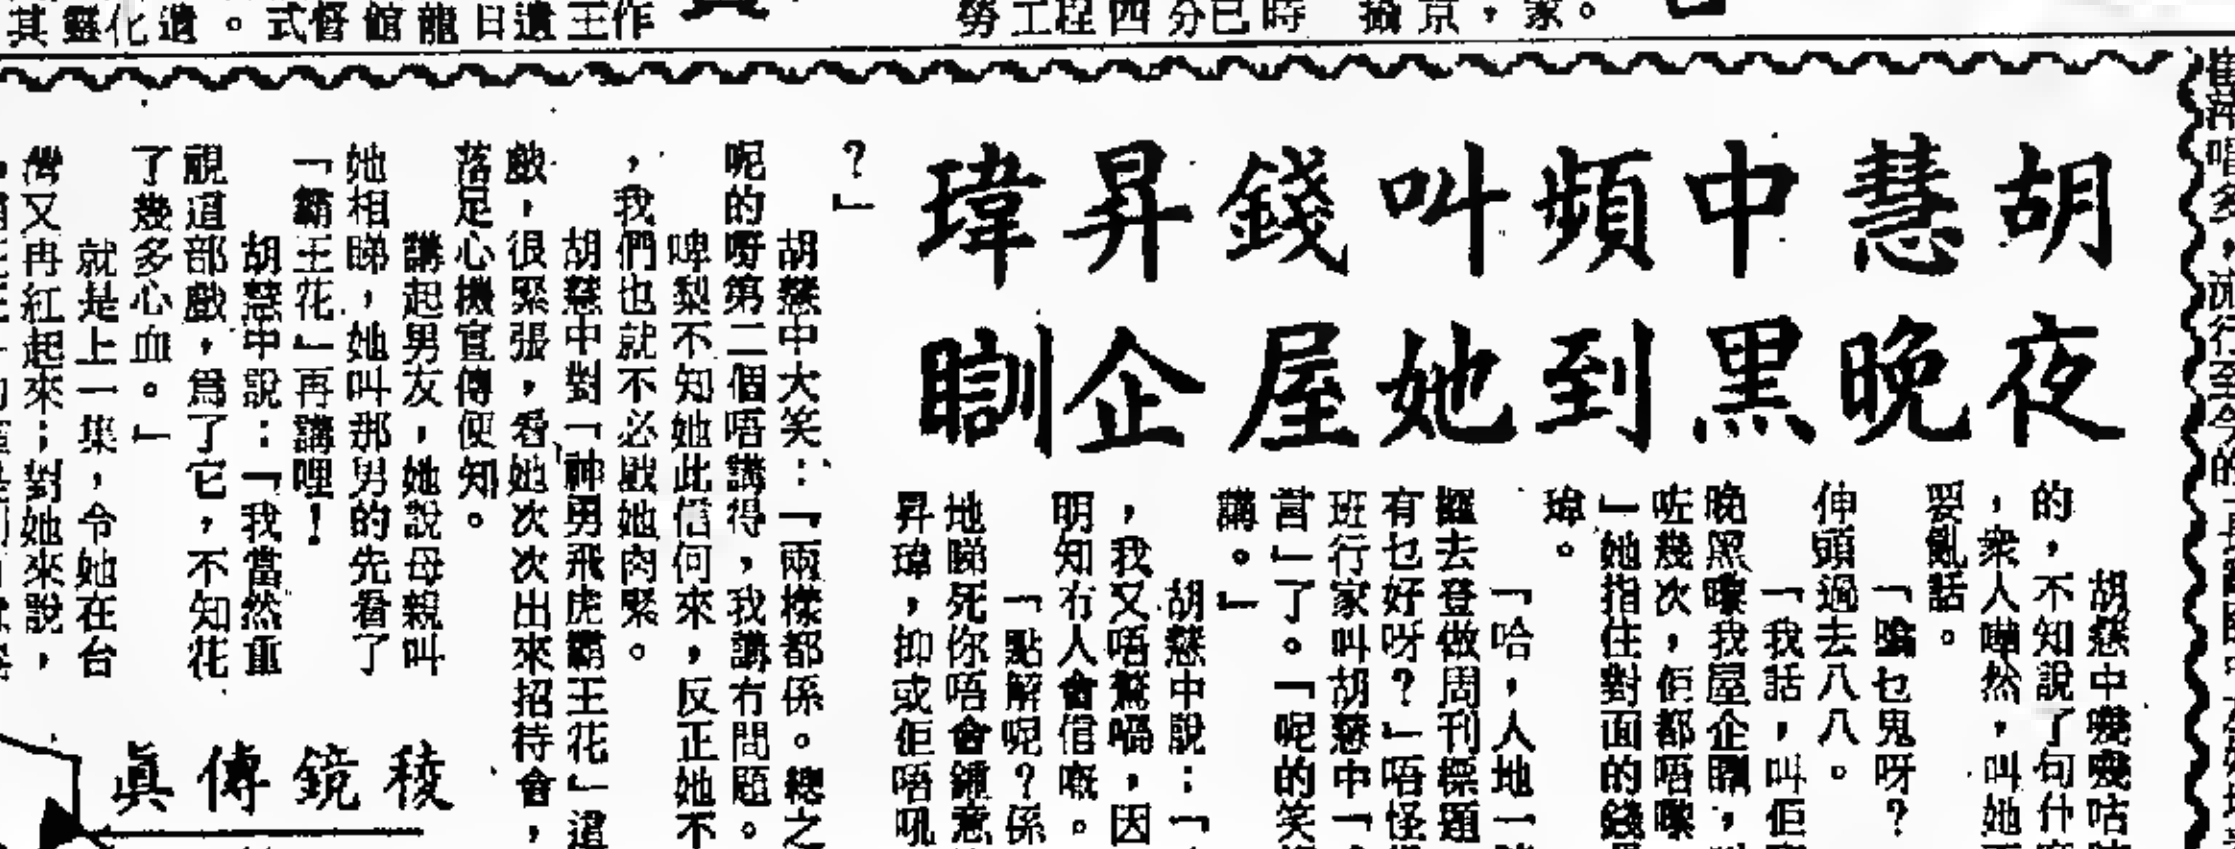 胡慧中頻叫錢昇瑋
夜晚黑到她屋企瞓
胡慧中嘰嘰咕
的，不知說了句什
，衆人嘩然，叫她不
要亂話。
「噏乜鬼呀？
伸頭過去八八。
「我話，叫佢
晚黑嚟我屋企瞓，叫
咗幾次，佢都唔嚟
」她指住對面的錢昇
瑋。
「哈，人地一
擺去登做周刊標題
有乜好呀？」唔怪得
班行家叫胡慧中「
言」了。「呢的笑
講。」
胡慧中說：「
，我又唔驚喎，因
明知冇人會信嘅。
「點解呢？係
地睇死你唔會鍾意
昇瑋，抑或佢唔吼
？」
胡慧中大笑：「兩樣都係。總之
呢的呀第二個唔講得，我講冇問題。
啤梨不知她此信何來，反正她不
，我們也就不必戥她肉緊。
胡慧中對「神勇飛虎霸王花」這
戲，很緊張，看她次次出來招待會，
落足心機宣傳便知。
講起男友，她說母親叫
她相睇，她叫那男的先看了
「霸王花」再講哩！
胡慧中說：「我當然重
視這部戲，爲了它，不知花
了幾多心血。」
就是上一集，令她在台
灣又再紅起來；對她來說，
稜鏡傳眞
其靈化遺。式督館龍日遺王作
勞工程四分已時
京，家。